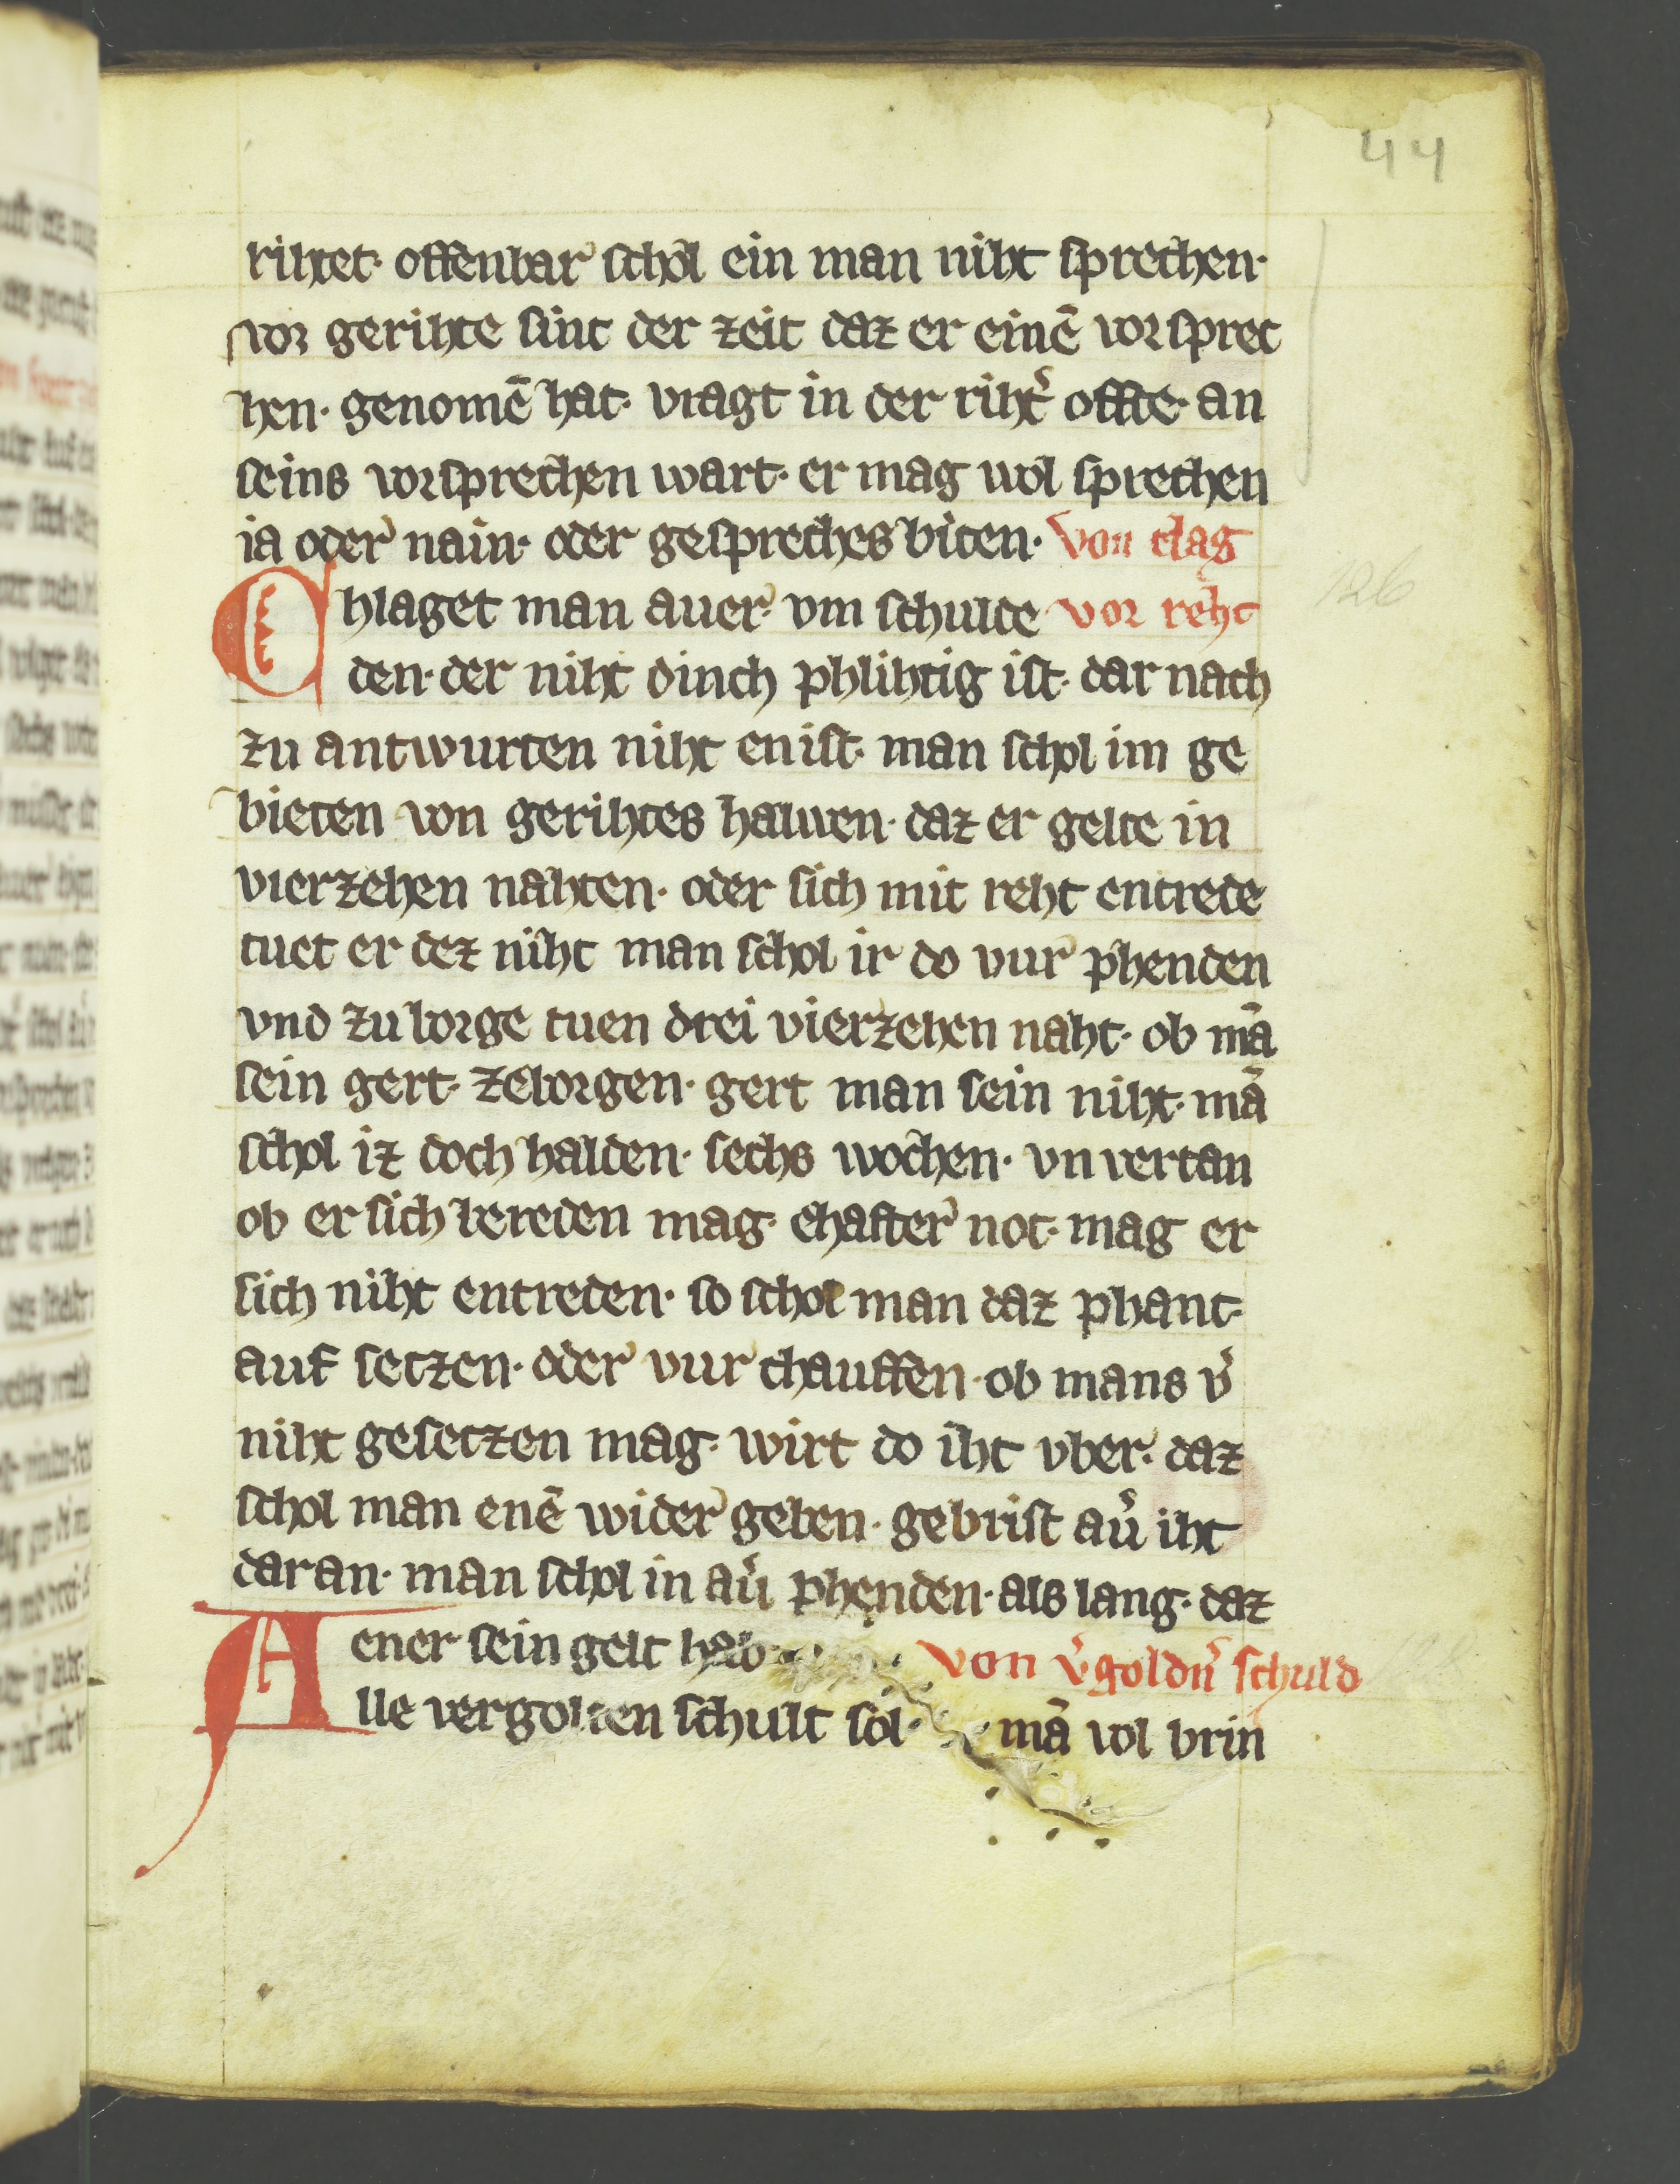 44
rihtet· offenbar schol ein man niht sprechen·
vor gerihte sint der zeit daz er einē vorsprec
hen· genomē hat· vragt in der riht̓ offte· an
seins vorsprechen wart· er mag wol sprechen
ia oder nain· oder gespreches biten· von clag
Chlaget man auer· vm schulde vor reht
den· der niht dinch phlihtig ist· dar nach
zu antwurten niht enist· man schol im ge
bieten von gerihtes haluen· daz er gelte in
vierzehen nahten· oder sich mit reht entrede
tuet er dez niht man schol ir do vur phenden
vnd zu borge tuen drei vierzehen naht· ob mā
sein gert· zeborgen· gert man sein niht· mā
schol iz doch halden· sechs wochen· vn vertan
ob er sich bereden mag· ehafter not· mag er
sich niht entreden· so schol man daz phant·
auf setzen· oder vur chauffen· ob mans v̓
niht gesetzen mag· wirt do iht vber· daz
schol man enē wider geben· gebrist au̓ iht
daran· man schol in au̓ phenden· als lang· daz
ener sein gelt hab von v̓goldn̓ schuld
Alle vergolten schult sol· mā vol brin
126